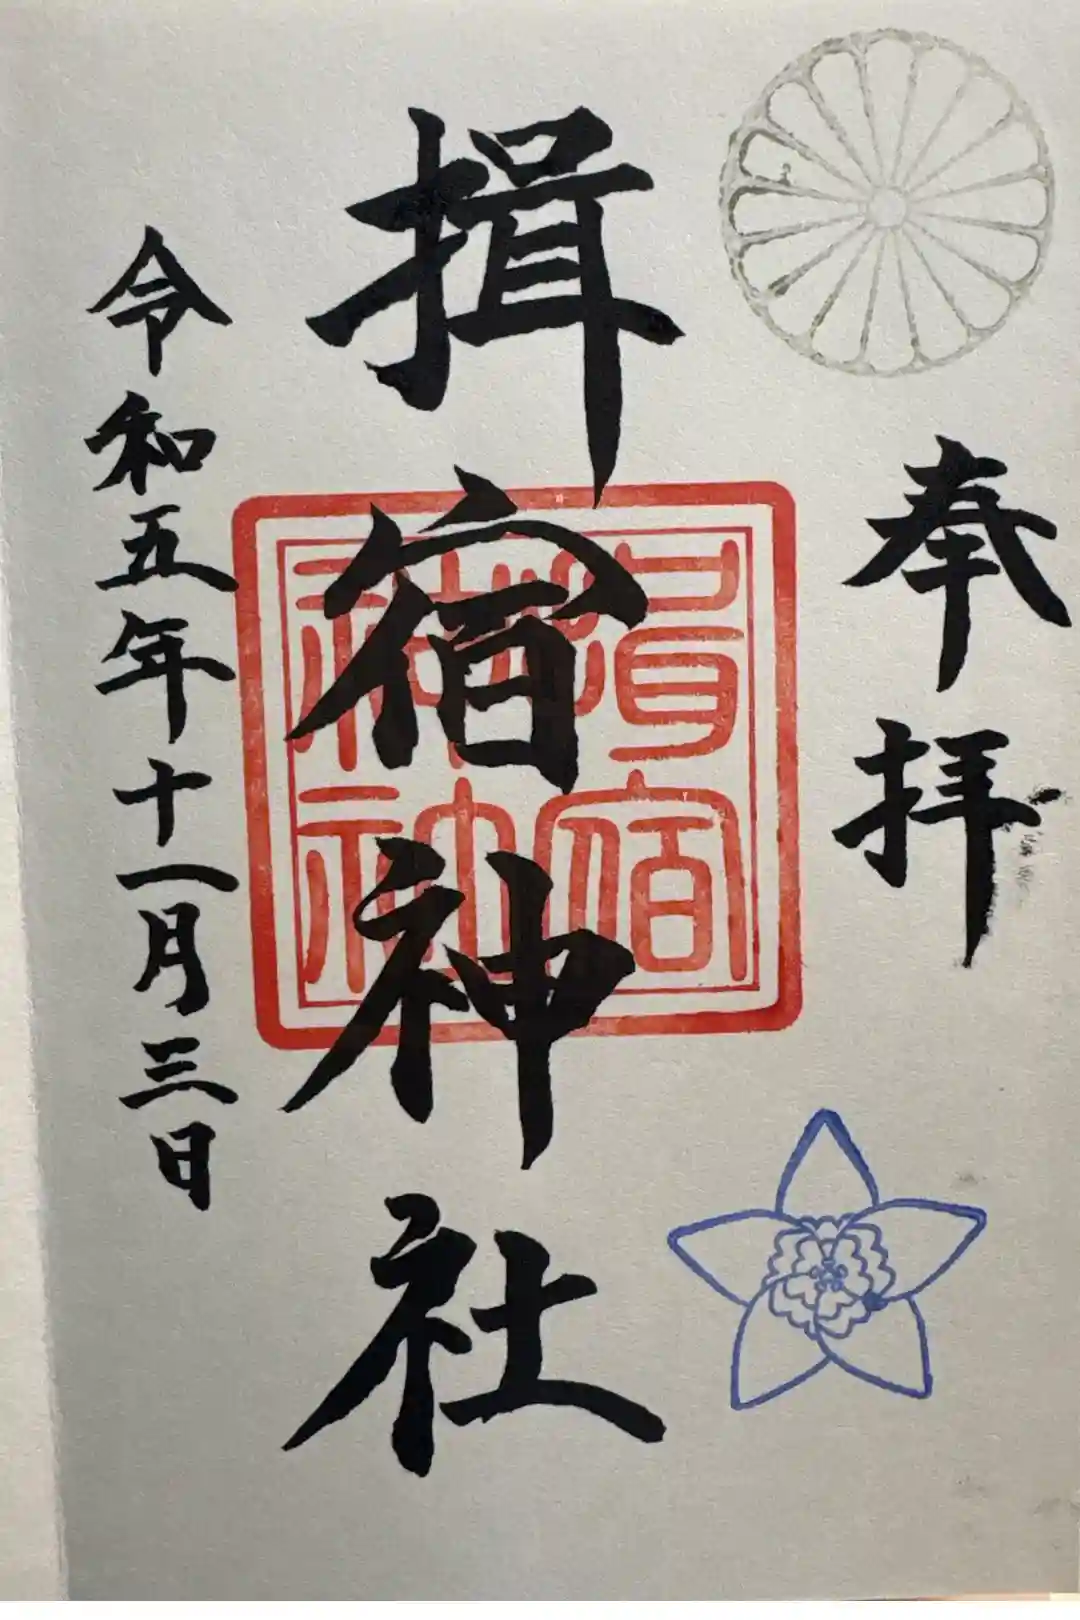 奉拝
揖宿神社
揖宿
神社
令和五年十一月三日